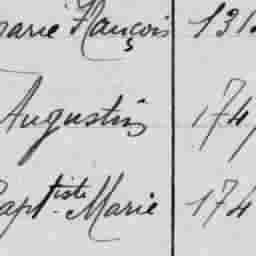 Marie François 131
Augustin 174
Bapt-iste Marie 174